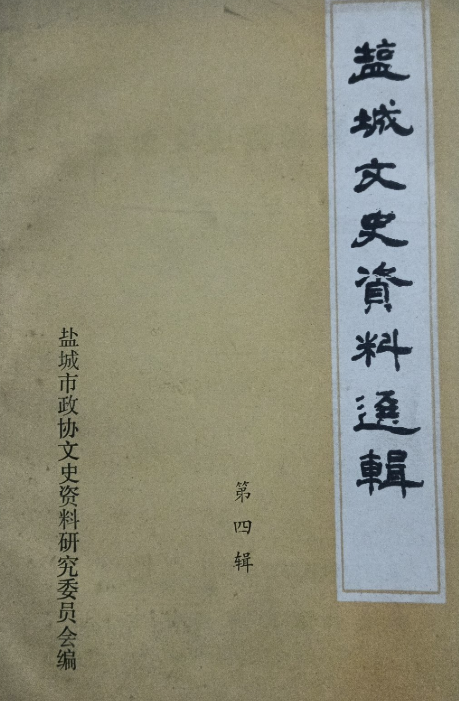 盐城文史資料選輯
第四辑
盐城市政协文史资料研究委员会编